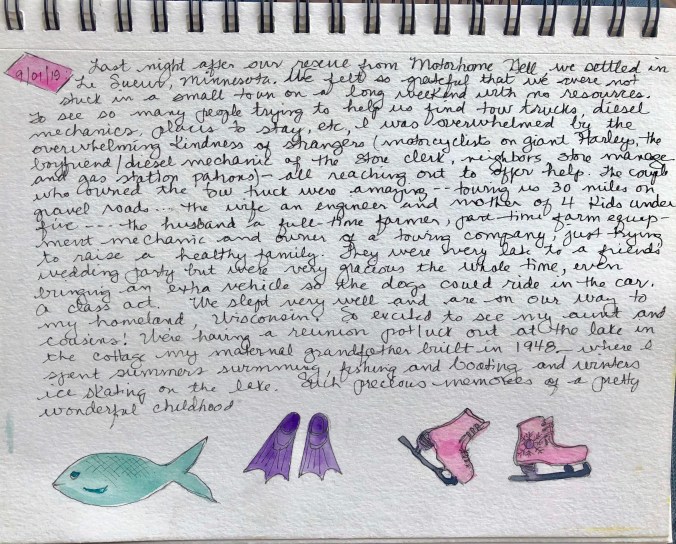 9/01/19
Last night after our rescue from Motorhome Hell we settled in
Le Sueur, Minnesota. We felt so grateful that we were not
stuck in a small town on a long weekend with no resources.
To see so many people trying to help us find tow trucks, diesel
mechanics, places to stay, etc, I was overwhelmed by the
overwhelming kindness of strangers (motorcyclists on giant Harleys, the
boyfriend/diesel mechanic of the store clerk, neighbors, store manage
and gas station patrons) - all reaching out to offer help. The couple
who owned the tow truck were amazing -- towing us 30 miles on
gravel roads... the wife an engineer and mother of 4 kids under
five ---- the husband a full-time farmer, part-time farm equip-
ment mechanic and owner of a towing company, just trying
to raise a healthy family. They were very late to a friends
wedding party but were very gracious the whole time, even
bringing an extra vehicle so the dogs could ride in the car.
A class act. We slept very well and are on our way to
my homeland, Wisconsin. So excited to see my aunt and
cousins! We're having a reunion potluck out at the lake in
the cottage my maternal grandfather built in 1948 - where I
spent summers swimming, fishing and boating and winters
ice skating on the lake. Such precious memories of a pretty
wonderful childhood